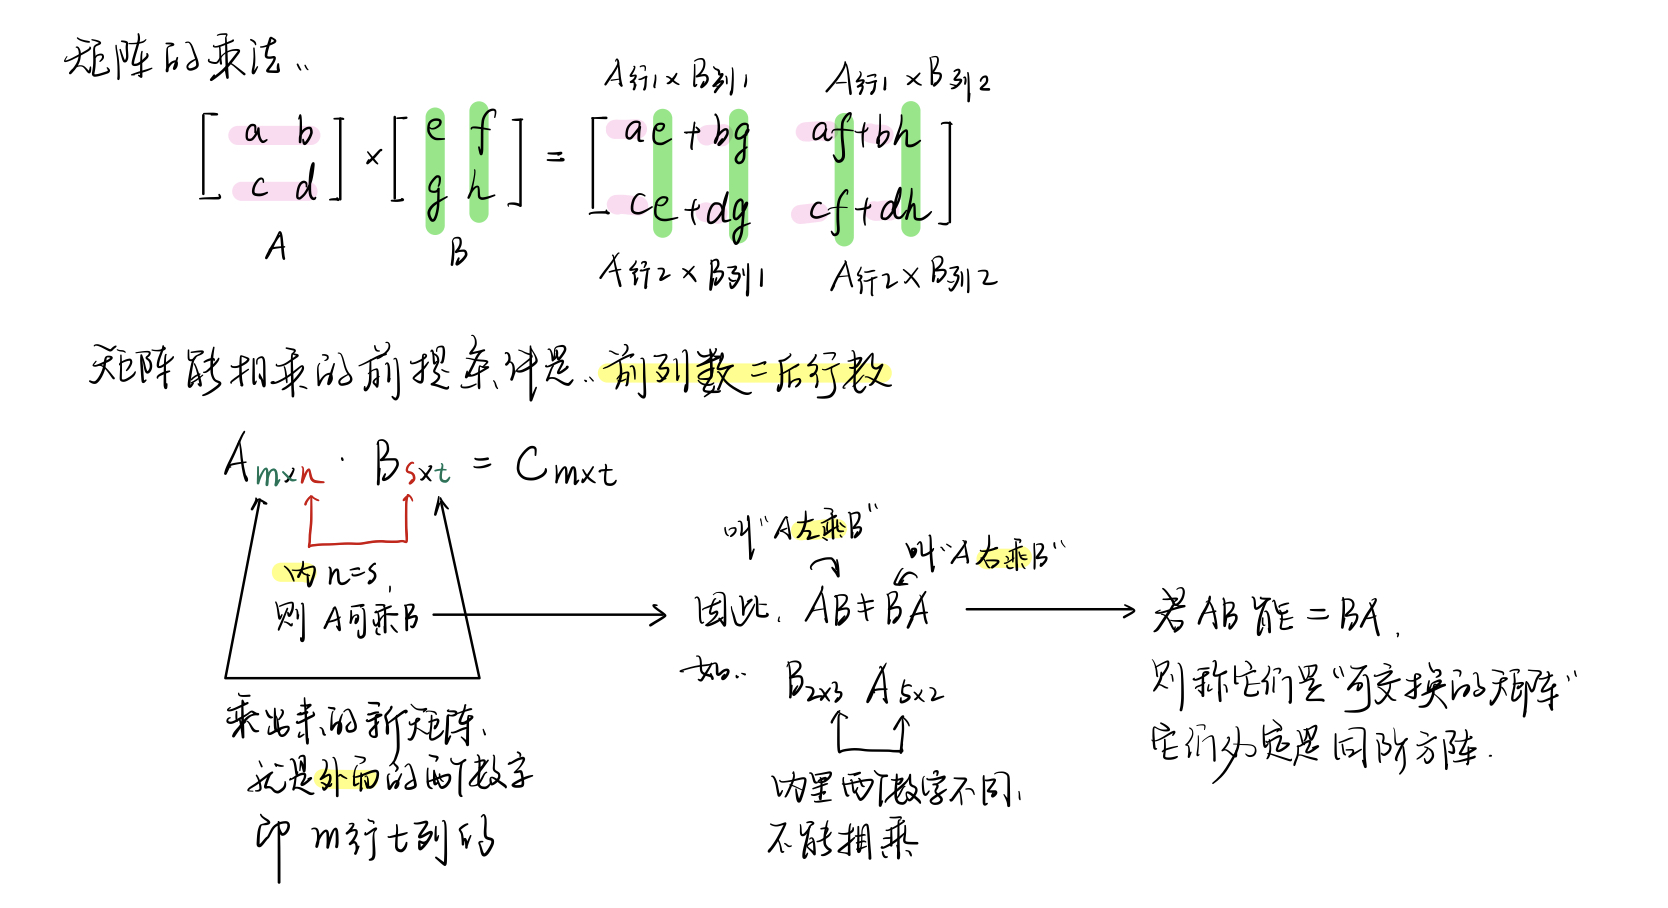 矩阵的乘法:
A行1×B列1 A行1×B列2
[a b] × [e f] = [ae+bg af+bh]
[c d] [g h] [ce+dg cf+dh]
A B
A行2×B列1 A行2×B列2
矩阵能相乘的前提条件是: 前列数=后行数
A m×n · B s×t = C m×t
内 n=s,
则 A可乘B
乘出来的新矩阵,
就是外面的两个数字
即 m行t列的
叫"A左乘B"
叫"A右乘B"
因此, AB≠BA
如: B 2×3 A 5×2
内里两个数字不同,
不能相乘
若 AB 能 = BA,
则称它们是"可交换的矩阵"
它们必定是同阶方阵.